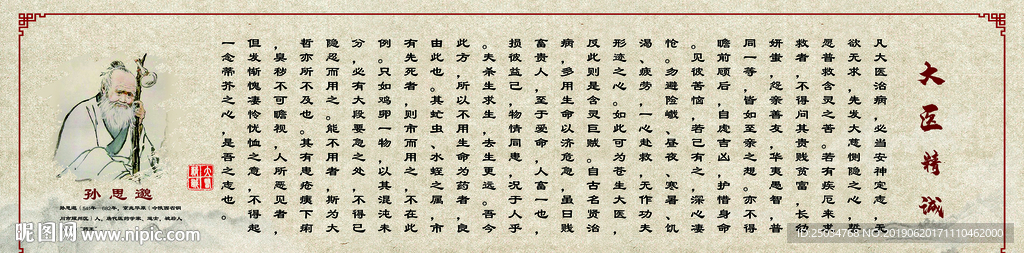 大医精诚
凡大医治病，必当安神定志，无
欲无求，先发大慈恻隐之心，誓
愿普救含灵之苦。若有疾厄来求
救者，不得问其贵贱贫富，长幼
妍蚩，怨亲善友，华夷愚智，普
同一等，皆如至亲之想。亦不得
瞻前顾后，自虑吉凶，护惜身命
。见彼苦恼，若己有之，深心凄
怆。勿避险巇、昼夜、寒暑、饥
渴、疲劳，一心赴救，无作功夫
形迹之心。如此可为苍生大医，
反此则是含灵巨贼。自古名贤治
病，多用生命以济危急，虽曰贱
富贵人，至于爱命，人富一也，
损彼益己，物情同患，况于人乎
。夫杀生求生，去生更远。吾今
此方，所以不用生命为药者，良
由此也。其虻虫、水蛭之属，市
有先死者，则市而用之，不在此
例。只如鸡卵一物，以其混沌未
分，必有大段要急之处，不得已
隐忍而用之。能不用者，斯为大
哲亦所不及也。其有患疮痍下痢
，臭秽不可瞻视，人所恶见者，
但发惭愧凄怜忧恤之意，不得起
一念蒂芥之心，是吾之志也。
孙思邈
昵图网 www.nipic.com
ID:25054768 NO:20190620171110462000